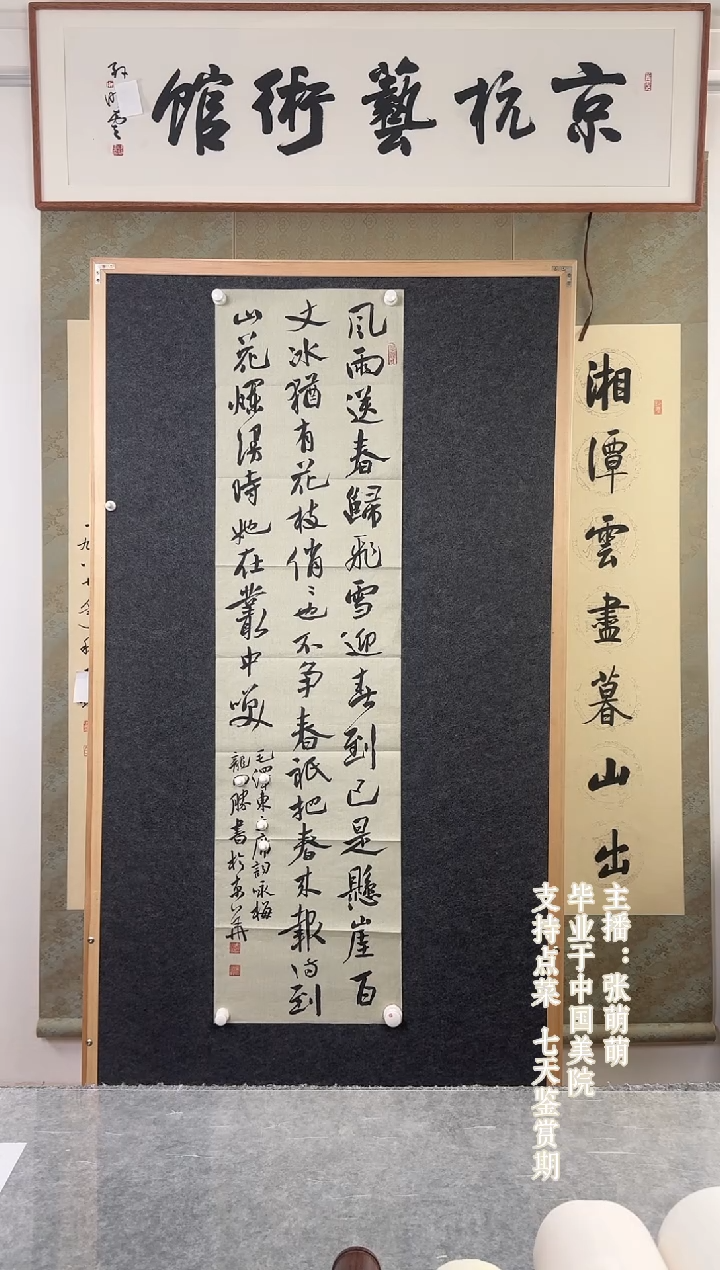 京杭藝術館
風雨送春歸飛雪迎春到已是懸崖百
丈冰猶有花枝俏〻也不争春祇把春来報待到
山花爛漫時她在叢中笑
毛澤東主席詞咏梅
勝書於京華
湘潭雲盡暮山出
一九八七年
主播：张萌萌
毕业于中国美院
支持点菜 七天鉴赏期